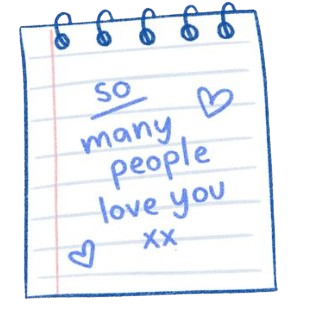 so
many
people
love you
xx